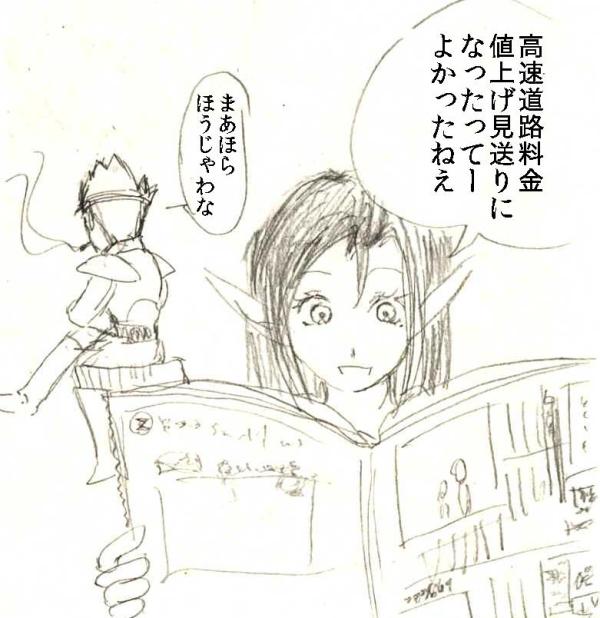 高速道路料金
値上げ見送りに
なったってー
よかったねえ
まあほら
ほうじゃわな